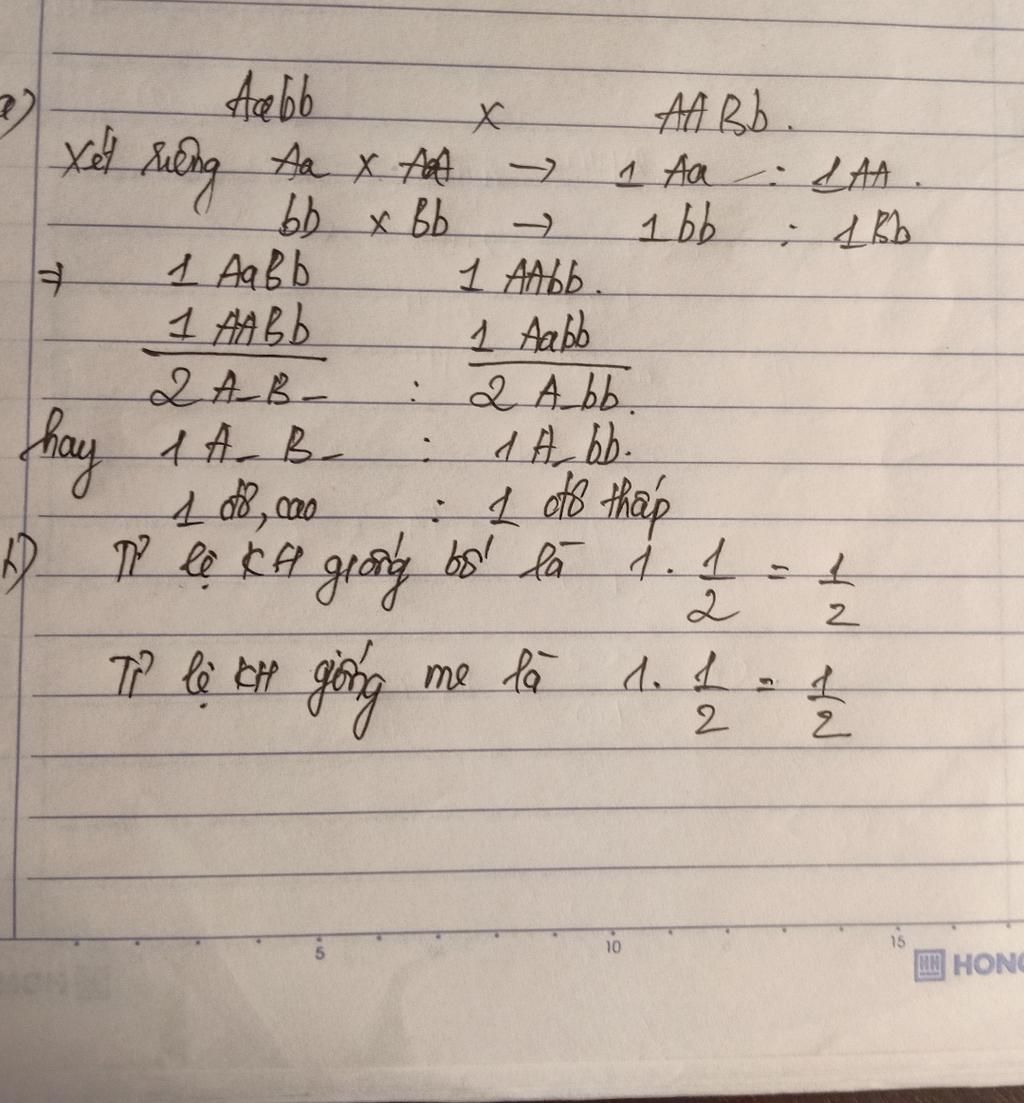 a) Aabb x AABb.
Xét riêng Aa x AA → 1 Aa : 1AA.
bb x Bb → 1bb : 1Bb
⇒ 1 AaBb 1 AAbb.
1 AABb 1 Aabb
2 A_B_ : 2 A_bb.
hay 1 A_B_ : 1A_bb.
1 đỏ, cao : 1 đỏ thấp
b) Tỉ lệ KH giống bố là 1. 1/2 = 1/2
Tỉ lệ KH giống mẹ là 1. 1/2 = 1/2
5 10 15
HONG